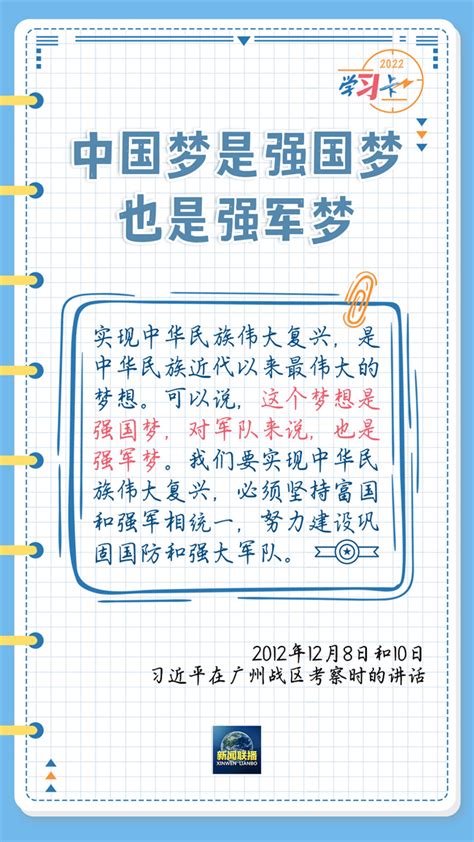 2022
学习卡
中国梦是强国梦
也是强军梦
实现中华民族伟大复兴，是
中华民族近代以来最伟大的
梦想。可以说，这个梦想是
强国梦，对军队来说，也是
强军梦。我们要实现中华民
族伟大复兴，必须坚持富国
和强军相统一，努力建设巩
固国防和强大军队。
2012年12月8日和10日
习近平在广州战区考察时的讲话
新闻联播
XINWEN LIANBO